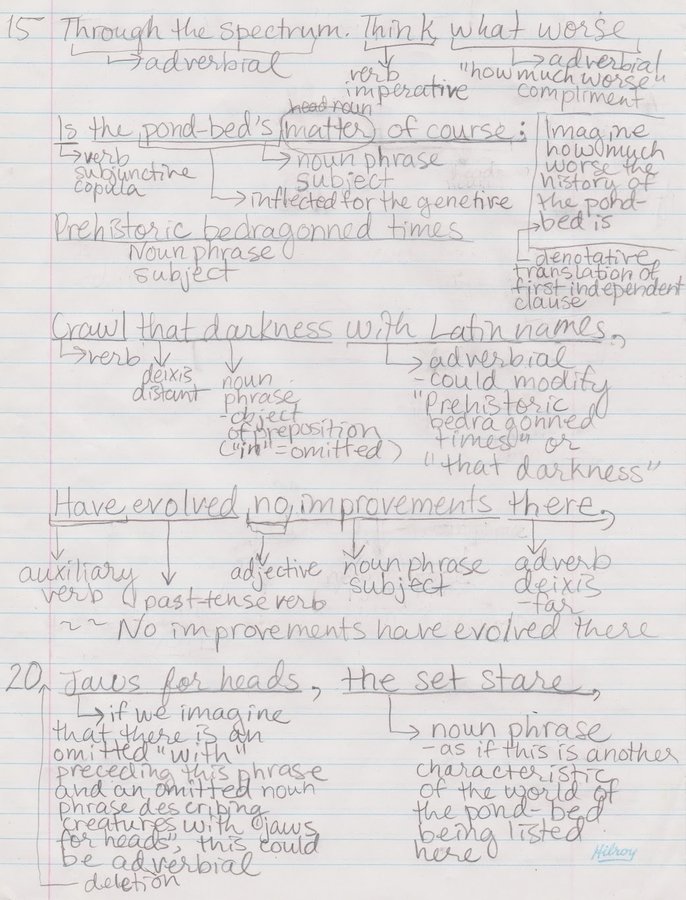 15 Through the spectrum. Think what worse
adverbial
verb
imperative
adverbial
"how much worse"
compliment
head noun
Is the pond-bed's matter of course:
verb
subjunctive
copula
noun phrase
subject
inflected for the genetive
Imagine
how much
worse the
history of
the pond-
bed is
denotative
translation of
first independent
clause
Prehistoric bedragonned times
Noun phrase
subject
Crawl that darkness with Latin names,
verb
deixis
distant
noun
phrase
-object
of preposition
("in"=omitted)
adverbial
-could modify
"Prehistoric
bedragonned
times" or
"that darkness"
Have evolved no improvements there,
auxiliary
verb
past-tense verb
adjective
noun phrase
subject
adverb
deixis
-far
~~ No improvements have evolved there
20 Jaws for heads, the set stare,
if we imagine
that there is an
omitted "with"
preceding this phrase
and an omitted noun
phrase describing
creatures with jaws
for heads, this could
be adverbial
deletion
noun phrase
-as if this is another
characteristic
of the world of
the pond-bed
being listed
here
Hilroy